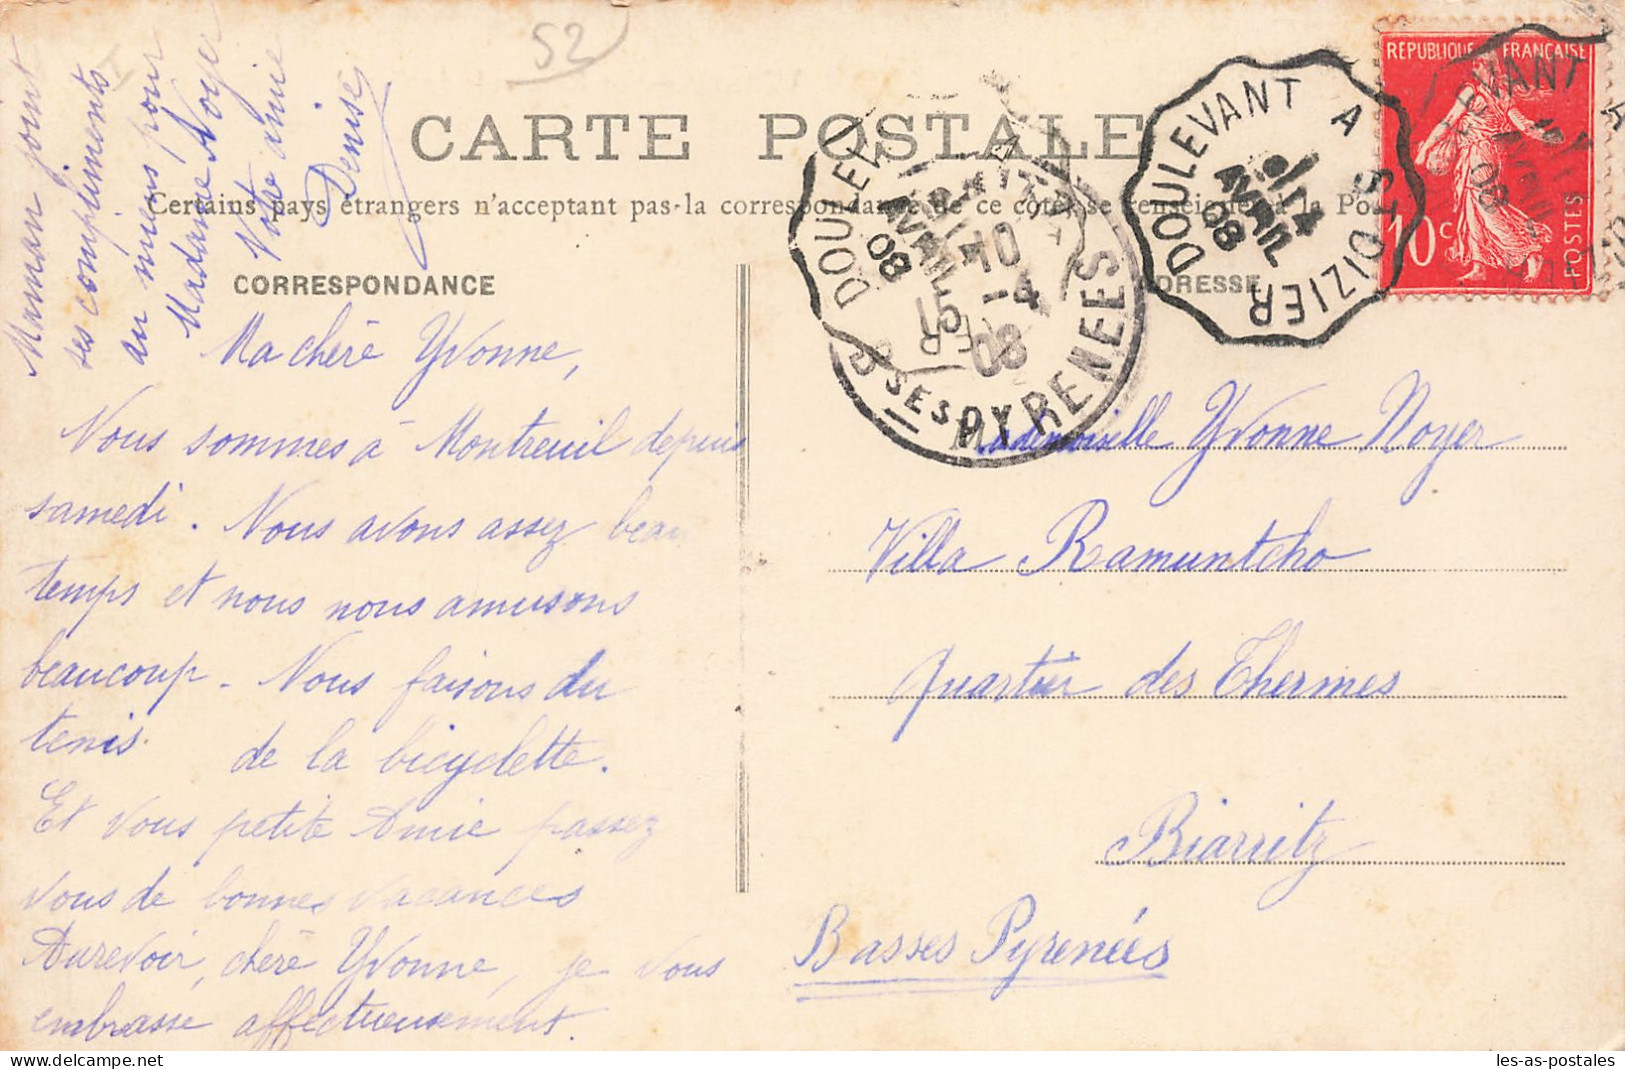 52
CARTE POSTALE
Certains pays étrangers n'acceptent pas la correspondance de ce côté, se renseigner à la Poste
CORRESPONDANCE
ADRESSE
Ma chère Yvonne,
Nous sommes à Montreuil depuis
samedi. Nous avons assez beau
temps et nous nous amusons
beaucoup. Nous faisons du
tenis. de la bicyclette.
Et vous petite Amie passez
vous de bonnes vacances
Aurevoir, chère Yvonne, je vous
embrasse affectueusement.
Maman joint
ses compliments
au miens pour
Madame Noyer
Votre amie
Denise
Mademoiselle Yvonne Noyer
Villa Ramuntcho
Quartier des Thermes
Biarritz
Basses Pyrenées
DOULEVANT A ST DIZIER
14
AVRIL
08
10
15-4
08
BSES PYRENEES
REPUBLIQUE FRANÇAISE
10c
POSTES
les-as-postales